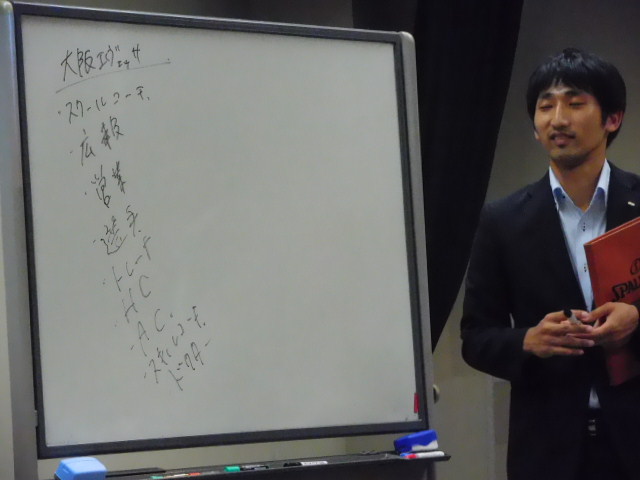 大阪エヴェッサ
・スクールコーチ
・広報
・営業
・選手
・トレーナー
・HC
・AC
・スキルコーチ
・ドクター
SPAL